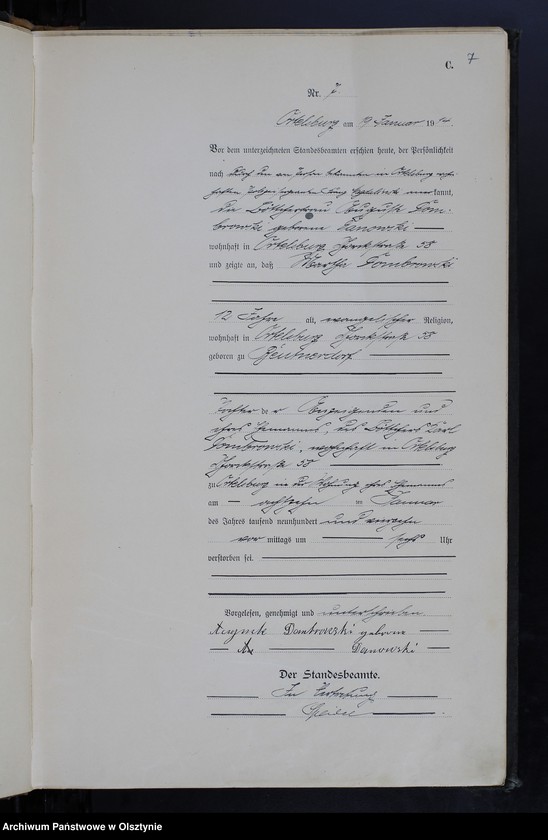 C. 7
Nr. 7.
Ortelsburg am 19 Januar 1914.
Vor dem unterzeichneten Standesbeamten erschien heute, der Persönlichkeit
nach durch den an Person bekannten in Ortelsburg wohn-
haften Polizeisergeanten anerkannt,
die Böttcherfrau Auguste Dom-
browski geborene Danowski
wohnhaft in Ortelsburg Yorckstraße 58
und zeigte an, daß Martha Dombrowski
12 Jahre alt, evangelischer Religion,
wohnhaft in Ortelsburg Yorckstraße 58
geboren zu Beutnerdorf
Tochter der Anzeigenden und
ihres Ehemanns, des Böttchers Karl
Dombrowski, wohnhaft in Ortelsburg
Yorckstraße 58
zu Ortelsburg in der Wohnung ihres Ehemannes
am achtzehn ten Januar
des Jahres tausend neunhundert und vierzehn
vor mittags um sechs Uhr
verstorben sei.
Vorgelesen, genehmigt und unterschrieben
Auguste Dombrowski geborne
Danowski
Der Standesbeamte.
In Vertretung
Archiwum Państwowe w Olsztynie